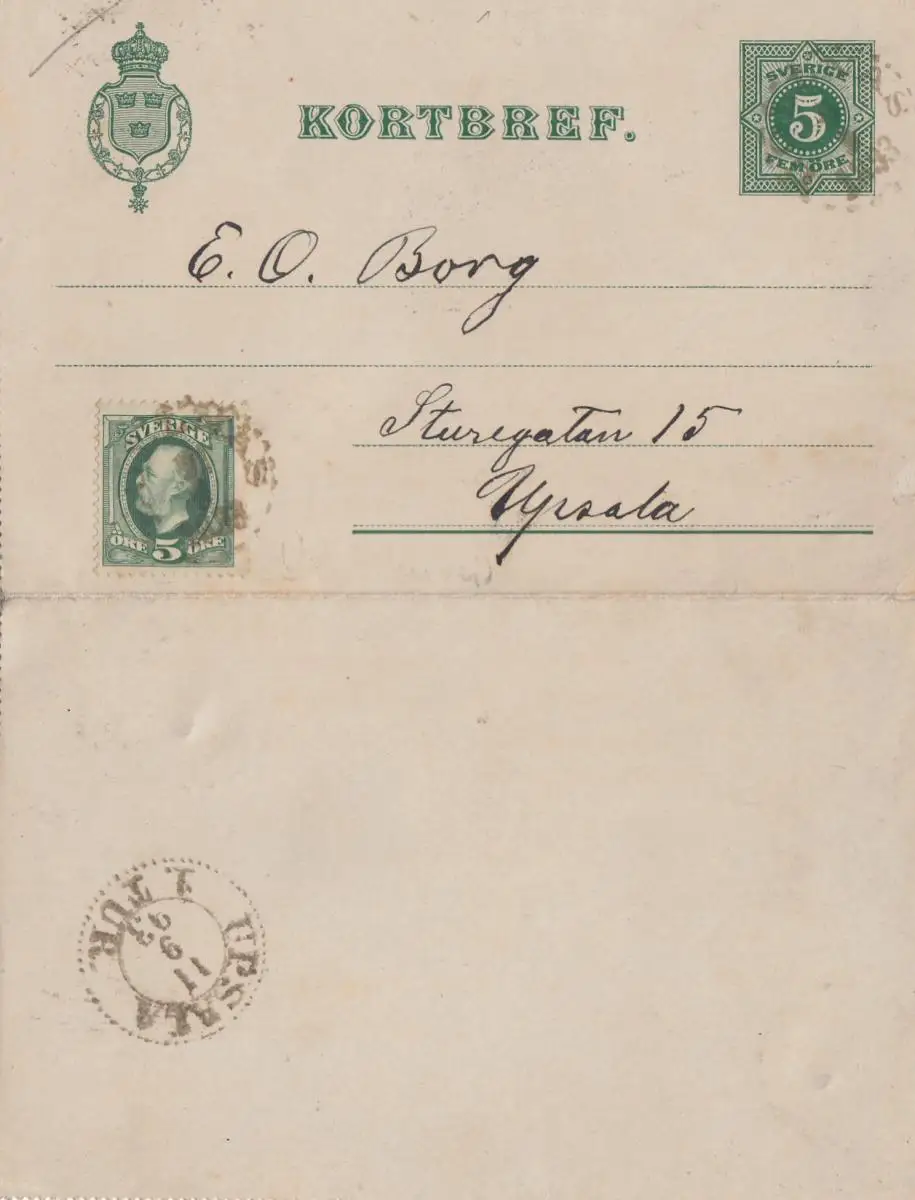 KORTBREF.
SVERIGE
5
FEM ÖRE
E. O. Borg
Sturegatan 15
Upsala
SVERIGE
ÖRE 5 ÖRE
UPSALA
1 TUR
11
9
93